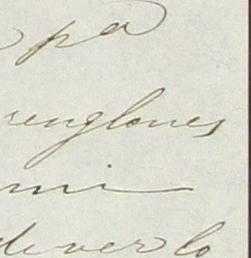 pa
renglones
mi
de verlo